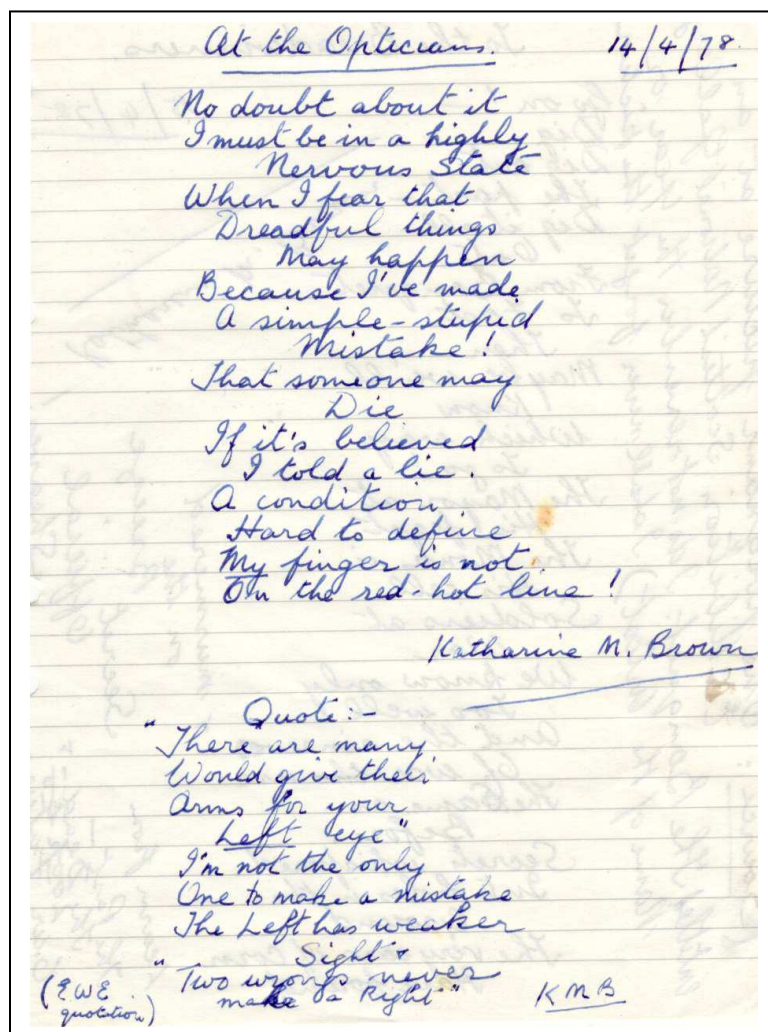 At the Opticians. 14/4/78.
No doubt about it
I must be in a highly
Nervous State
When I fear that
Dreadful things
May happen
Because I've made
A simple-stupid
Mistake!
That someone may
Die
If it's believed
I told a lie.
A condition
Hard to define
My finger is not
On the red-hot line!
Katharine M. Brown
Quote:-
"There are many
Would give their
Arms for your
Left eye"
I'm not the only
One to make a mistake
The Left has weaker
Sight &
"Two wrongs never
make a Right"
(EWE
quotation)
KMB